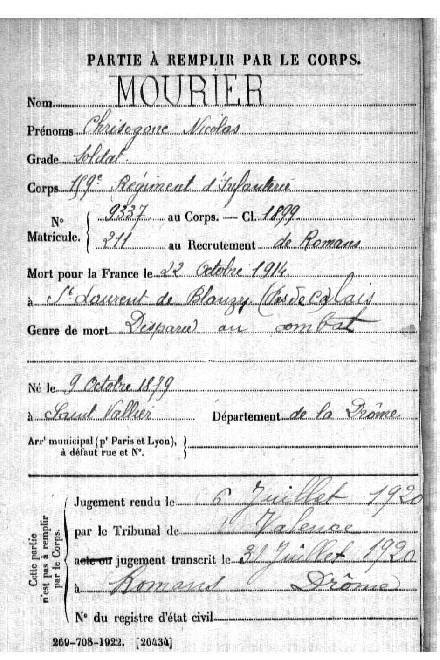 PARTIE À REMPLIR PAR LE CORPS.
Nom MOURIER
Prénoms Chrisogone Nicolas
Grade Soldat
Corps 159e Régiment d'Infanterie
N° Matricule. { 9337 au Corps. — Cl. 1899
211 au Recrutement de Romans
Mort pour la France le 22 Octobre 1914
à St Laurent de Blangy (Pas de Calais
Genre de mort Disparu au combat
Né le 9 Octobre 1879
à Saint Vallier Département de la Drôme
Arrt municipal (pr Paris et Lyon),
à défaut rue et N°.
Cette partie n'est pas à remplir par le Corps.
Jugement rendu le 6 Juillet 1920
par le Tribunal de Valence
acte ou jugement transcrit le 31 Juillet 1920
à Romans Drôme
N° du registre d'état civil
269-708-1922. [26434]